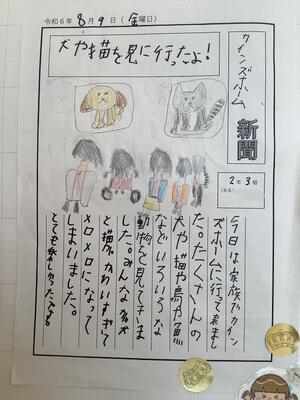 令和6年8月9日(金曜日)
カインズホーム
新聞
2年3組
(名前)
犬や猫を見に行ったよ!
今日は家族でカイン
ズホームに行って来まし
た。たくさんの
犬や猫や鳥や魚
などいろいろな
動物を見てきま
した。みんな犬
と猫がかわいすぎて
メロメロになって
しまいました。
とても楽しかったです。